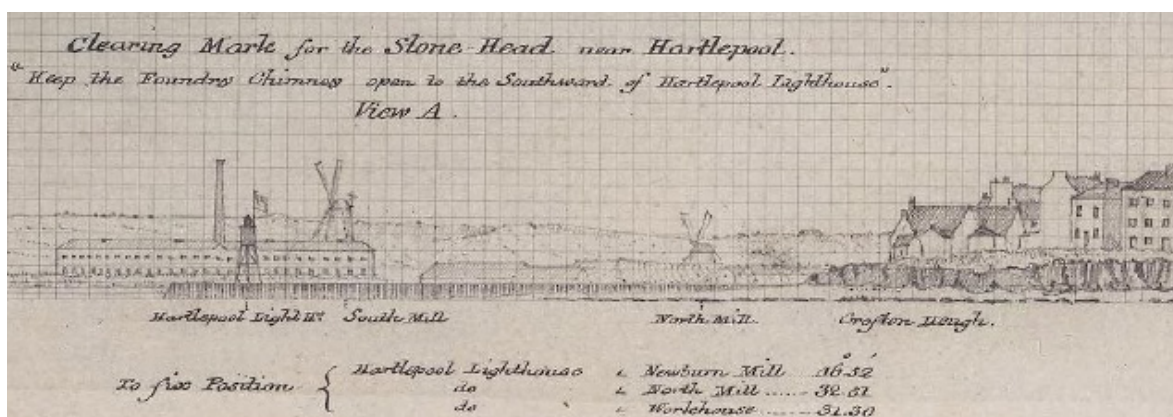 Clearing Mark for the Stone Head near Hartlepool.
"Keep the Foundry Chimney open to the Southward of Hartlepool Lighthouse".
View A.
Hartlepool Light Ho. South Mill North Mill. Crofton Heugh.
To fix Position { Hartlepool Lighthouse ∠ Newburn Mill 46.52
do ∠ North Mill ..... 32.51
do ∠ Workhouse ........ 31.30